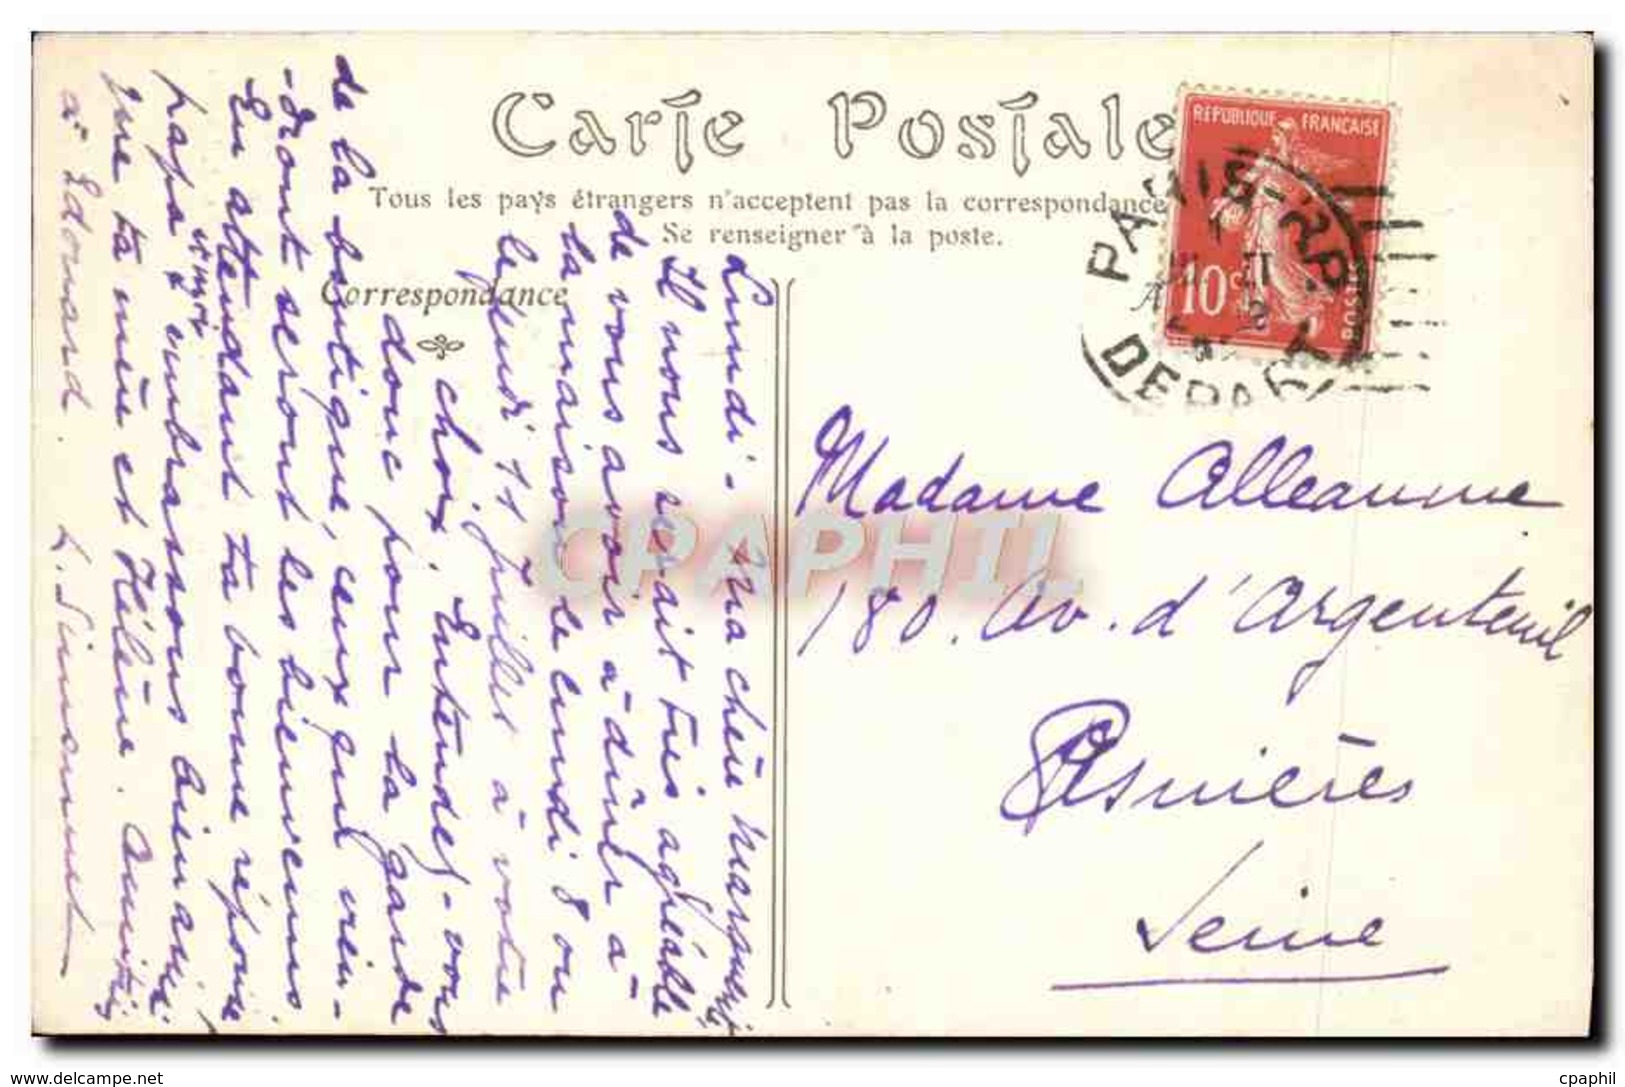 Carte Postale
Tous les pays étrangers n'acceptent pas la correspondance
Se renseigner à la poste.
Correspondance
REPUBLIQUE FRANÇAISE
10c
POSTES
PARIS-R.P.
DEPART
Lundi - Ma chère
Il nous serait très agréable
de vous avoir à dîner à
la maison le lundi 8 ou
le jeudi 11 juillet à votre
choix. Entendez-vous
donc pour la garde
de la boutique, ceux qui vien-
-dront seront les bienvenus
En attendant ta bonne réponse
papa et moi embrassons bien ainsi
que ta mère et Hélène. Amitiés
à Edouard.
Madame Alleaume
180. Av. d'Argenteuil
Asnières
Seine
CPAPHIL
www.delcampe.net
cpaphil